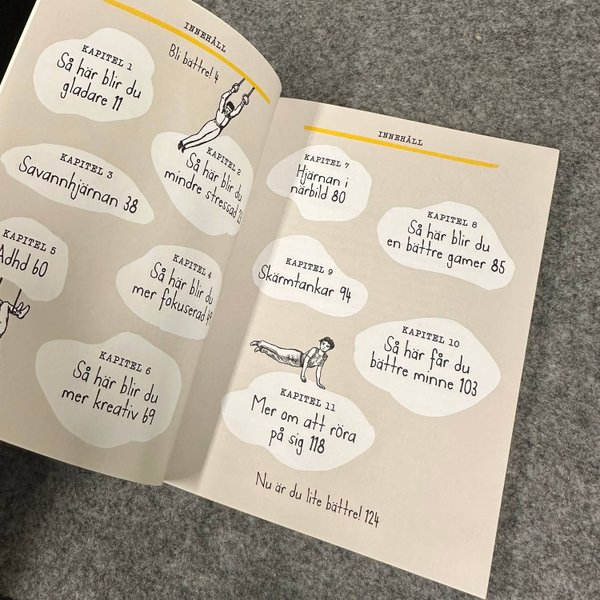 INNEHÅLL
Bli bättre! 4
KAPITEL 1
Så här blir du
gladare 11
KAPITEL 2
Så här blir du
mindre stressad
KAPITEL 3
Savannhjärnan 38
KAPITEL 4
Så här blir du
mer fokuserad
KAPITEL 5
Adhd 60
KAPITEL 6
Så här blir du
mer kreativ 69
INNEHÅLL
KAPITEL 7
Hjärnan i
närbild 80
KAPITEL 8
Så här blir du
en bättre gamer 85
KAPITEL 9
Skärmtankar 94
KAPITEL 10
Så här får du
bättre minne 103
KAPITEL 11
Mer om att röra
på sig 118
Nu är du lite bättre! 124